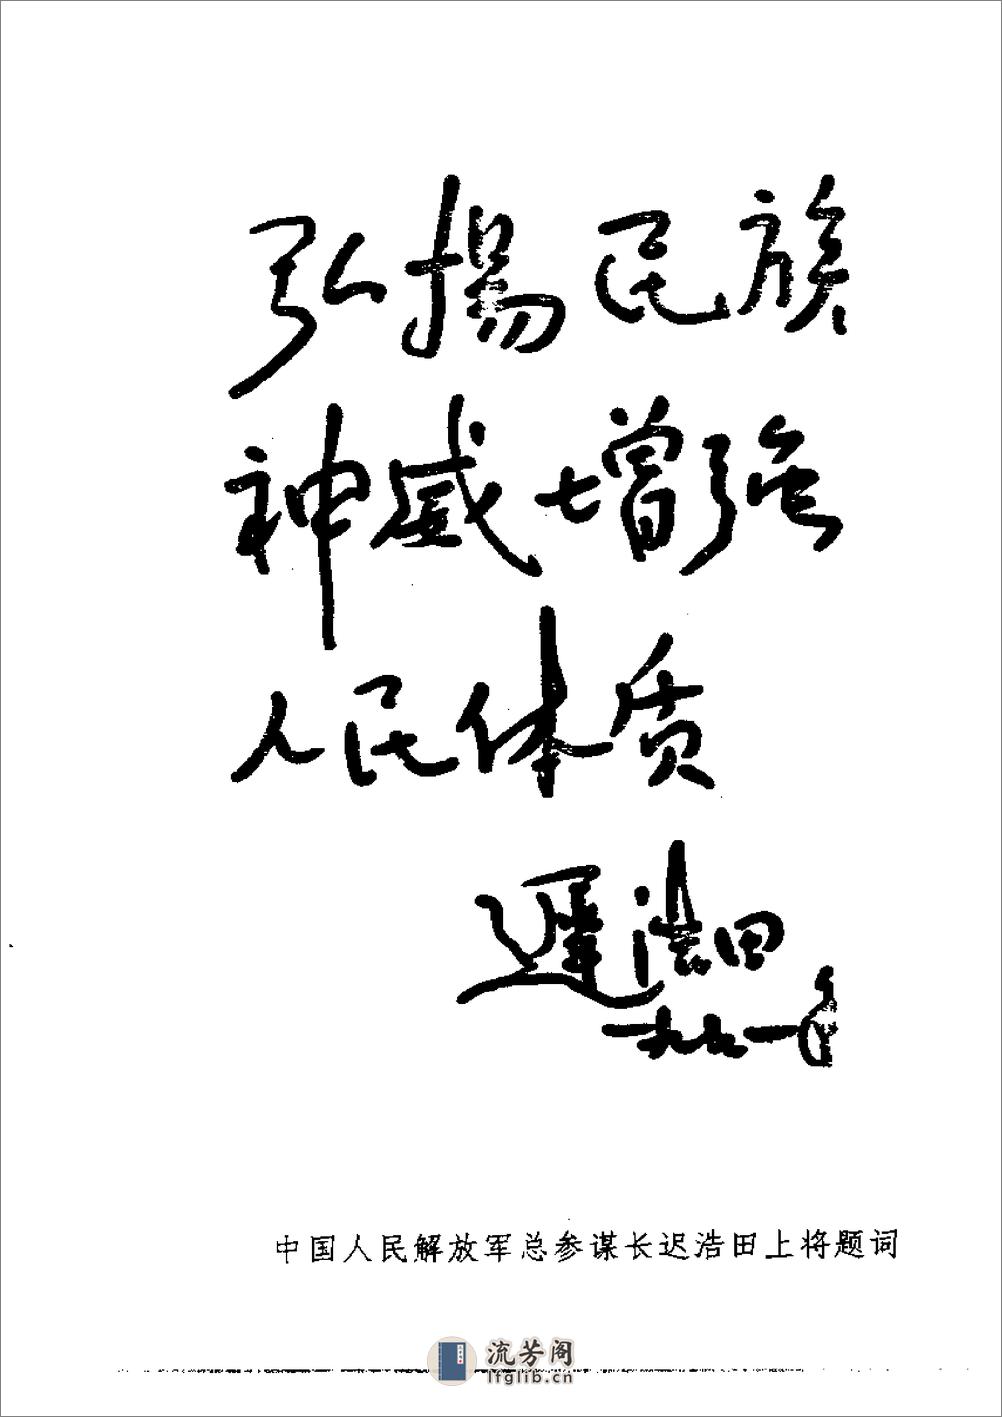 弘揚民族
神威增强
人民体质
遲浩田
一九九一年
中国人民解放军总参谋长迟浩田上将题词
流芳阁
lfglib.cn